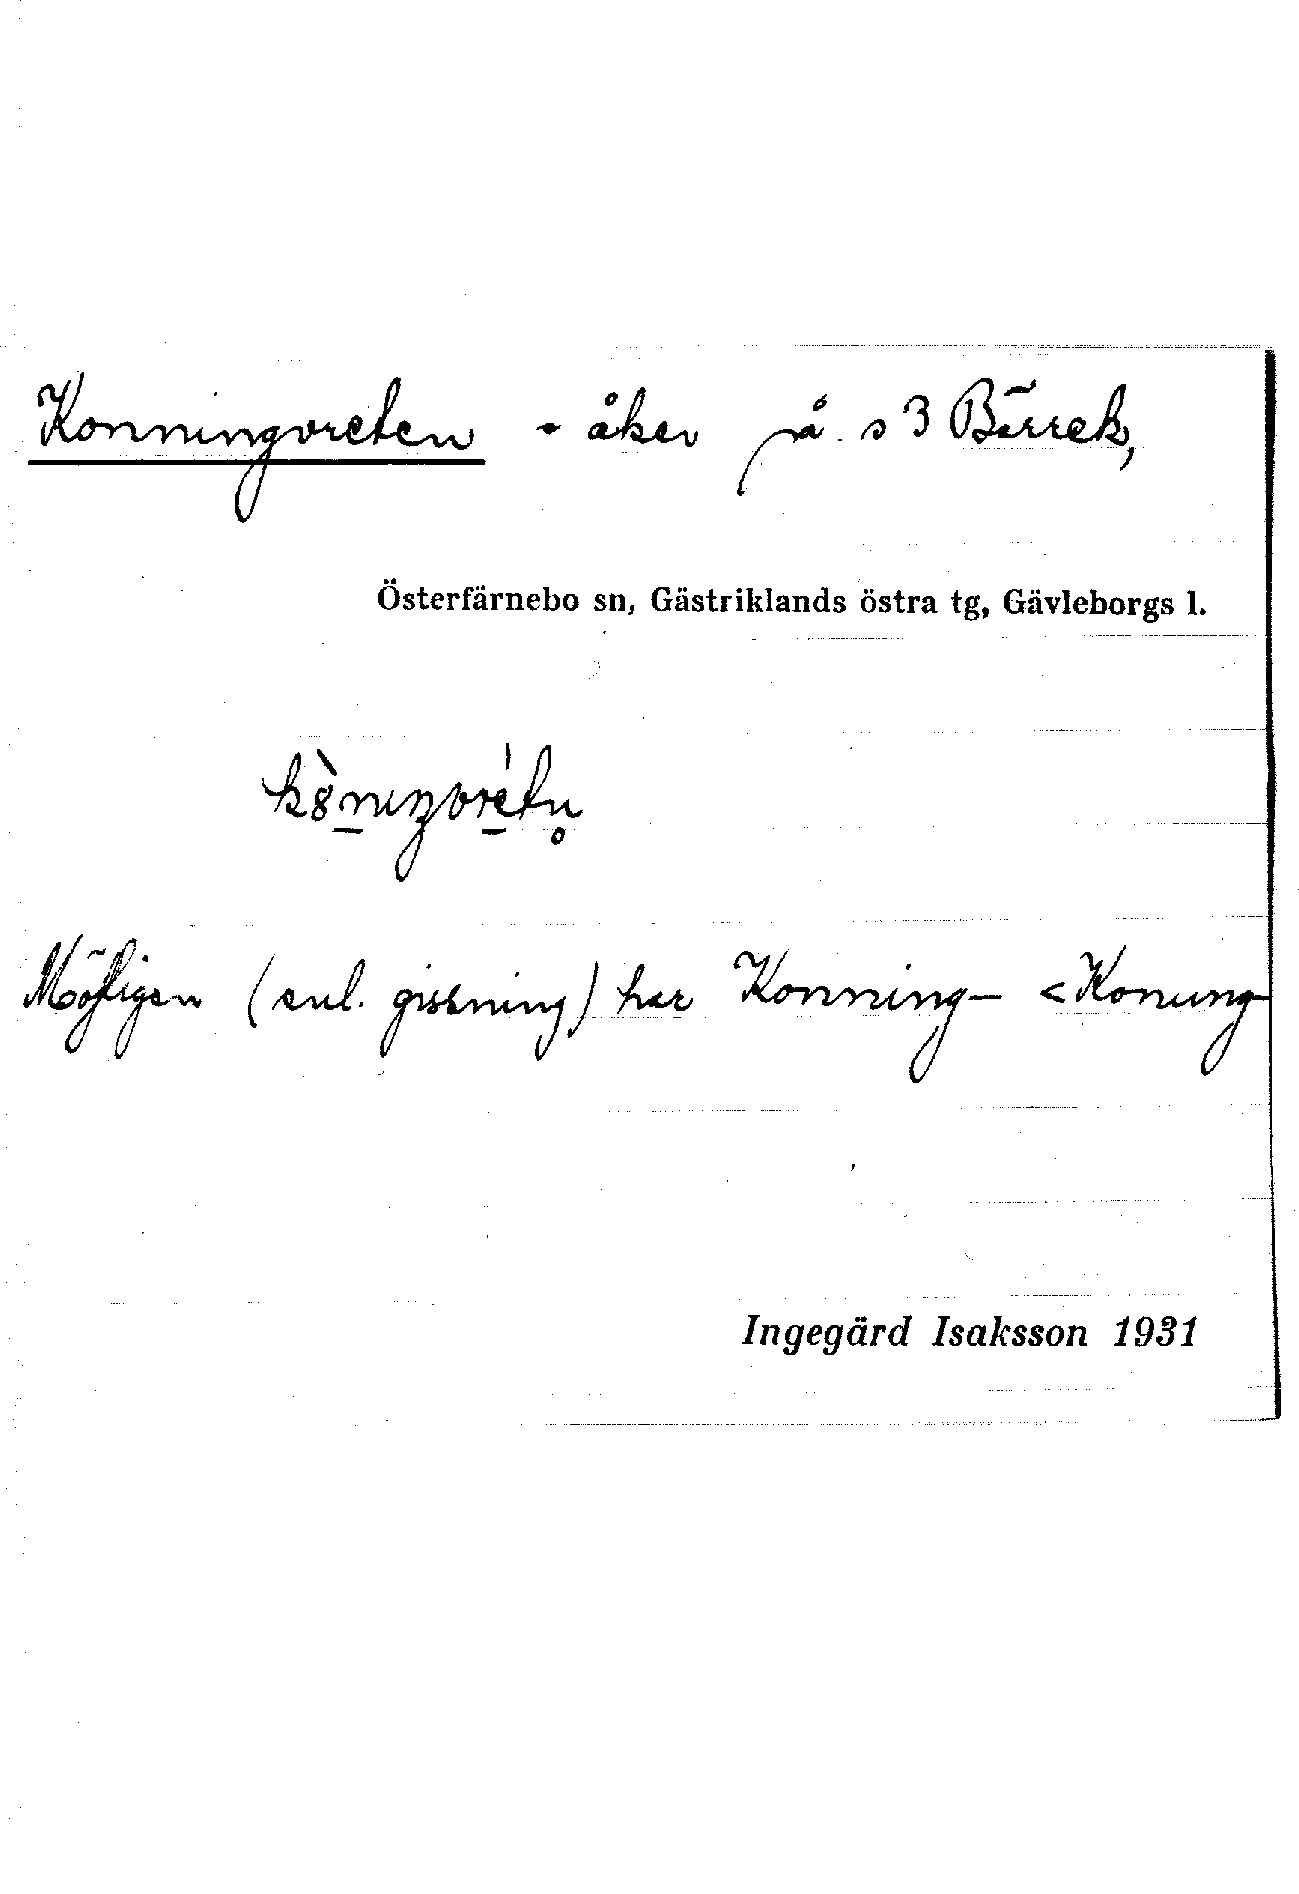 Konningvreten - åker på s 3 Bärrek,
Österfärnebo sn, Gästriklands östra tg, Gävleborgs l.
Möjligen (enl. gissning) har Konning- < Konung-
Ingegärd Isaksson 1931